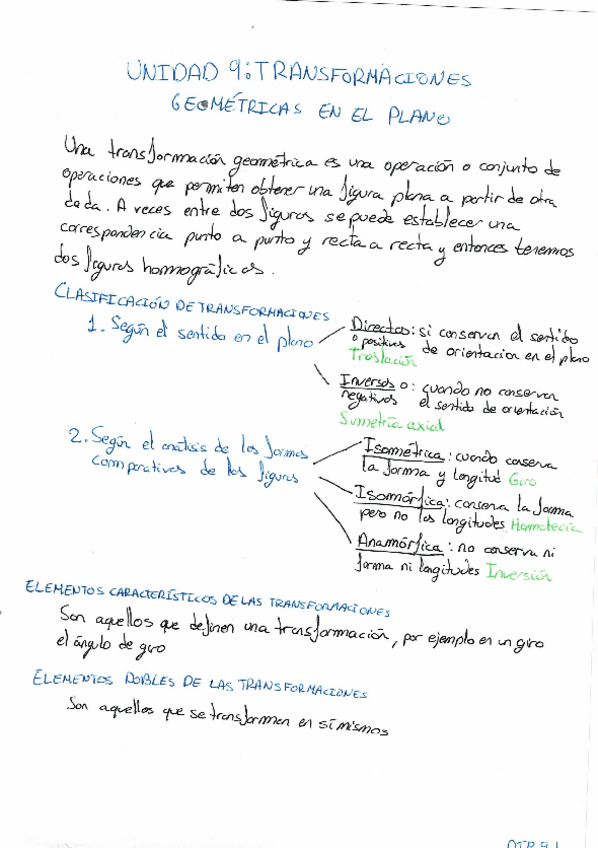 UNIDAD 9: TRANSFORMACIONES
GEOMÉTRICAS EN EL PLANO
Una transformación geométrica es una operación o conjunto de
operaciones que permiten obtener una figura plana a partir de otra
dada. A veces entre dos figuras se puede establecer una
correspondencia punto a punto y recta a recta y entonces tenemos
dos figuras homográficas.
CLASIFICACIÓN DE TRANSFORMACIONES
1. Según el sentido en el plano
Directas: si conservan el sentido
o positivas de orientacion en el plano
Traslación
Inversas o: cuando no conservan
negativas el sentido de orientación
Simetría axial
2. Según el análisis de las formas
comparativas de las figuras
Isométrica: cuando conserva
la forma y longitud Giro
Isomórfica: conserva la forma
pero no las longitudes Homotecia
Anamórfica: no conserva ni
forma ni longitudes Inversión
ELEMENTOS CARACTERÍSTICOS DE LAS TRANSFORMACIONES
Son aquellos que definen una transformación, por ejemplo en un giro
el ángulo de giro
ELEMENTOS DOBLES DE LAS TRANSFORMACIONES
Son aquellos que se transforman en sí mismos